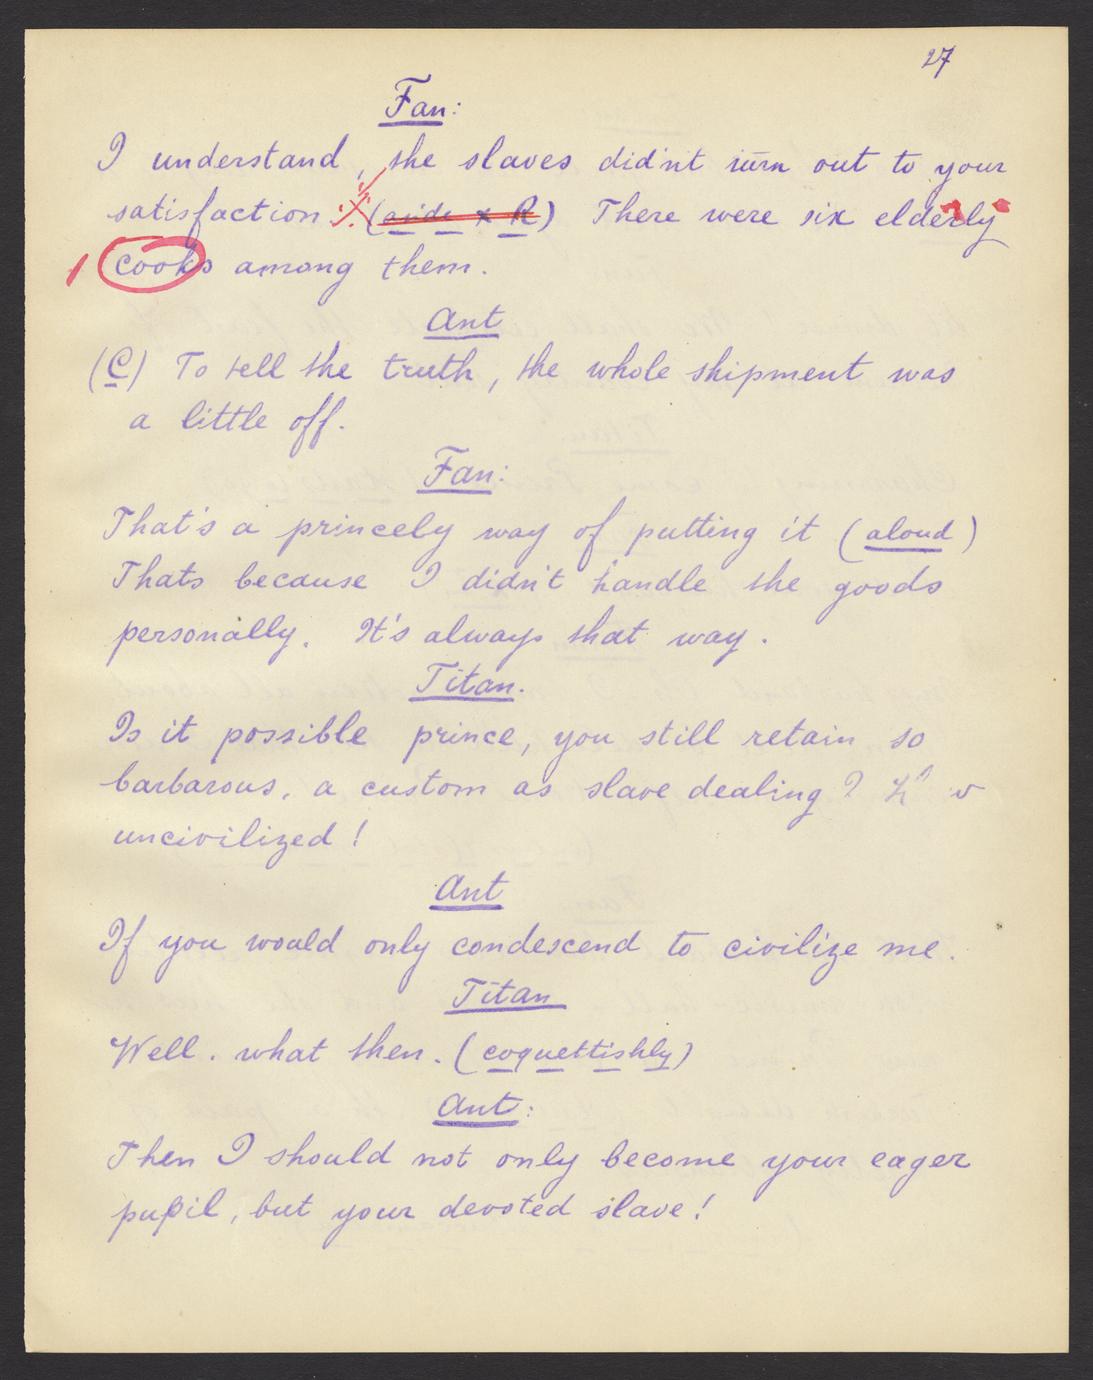 27
Fan:
I understand, the slaves did'nt turn out to your
satisfaction (aside x R) There were six elderly
1 cooks among them.
Ant
(C) To tell the truth, the whole shipment was
a little off.
Fan:
That's a princely way of putting it (aloud)
Thats because I didn't handle the goods
personally. It's always that way.
Titan.
Is it possible prince, you still retain so
barbarous, a custom as slave dealing?
uncivilized!
Ant
If you would only condescend to civilize me.
Titan
Well. what then. (coquettishly)
Ant:
Then I should not only become your eager
pupil, but your devoted slave!